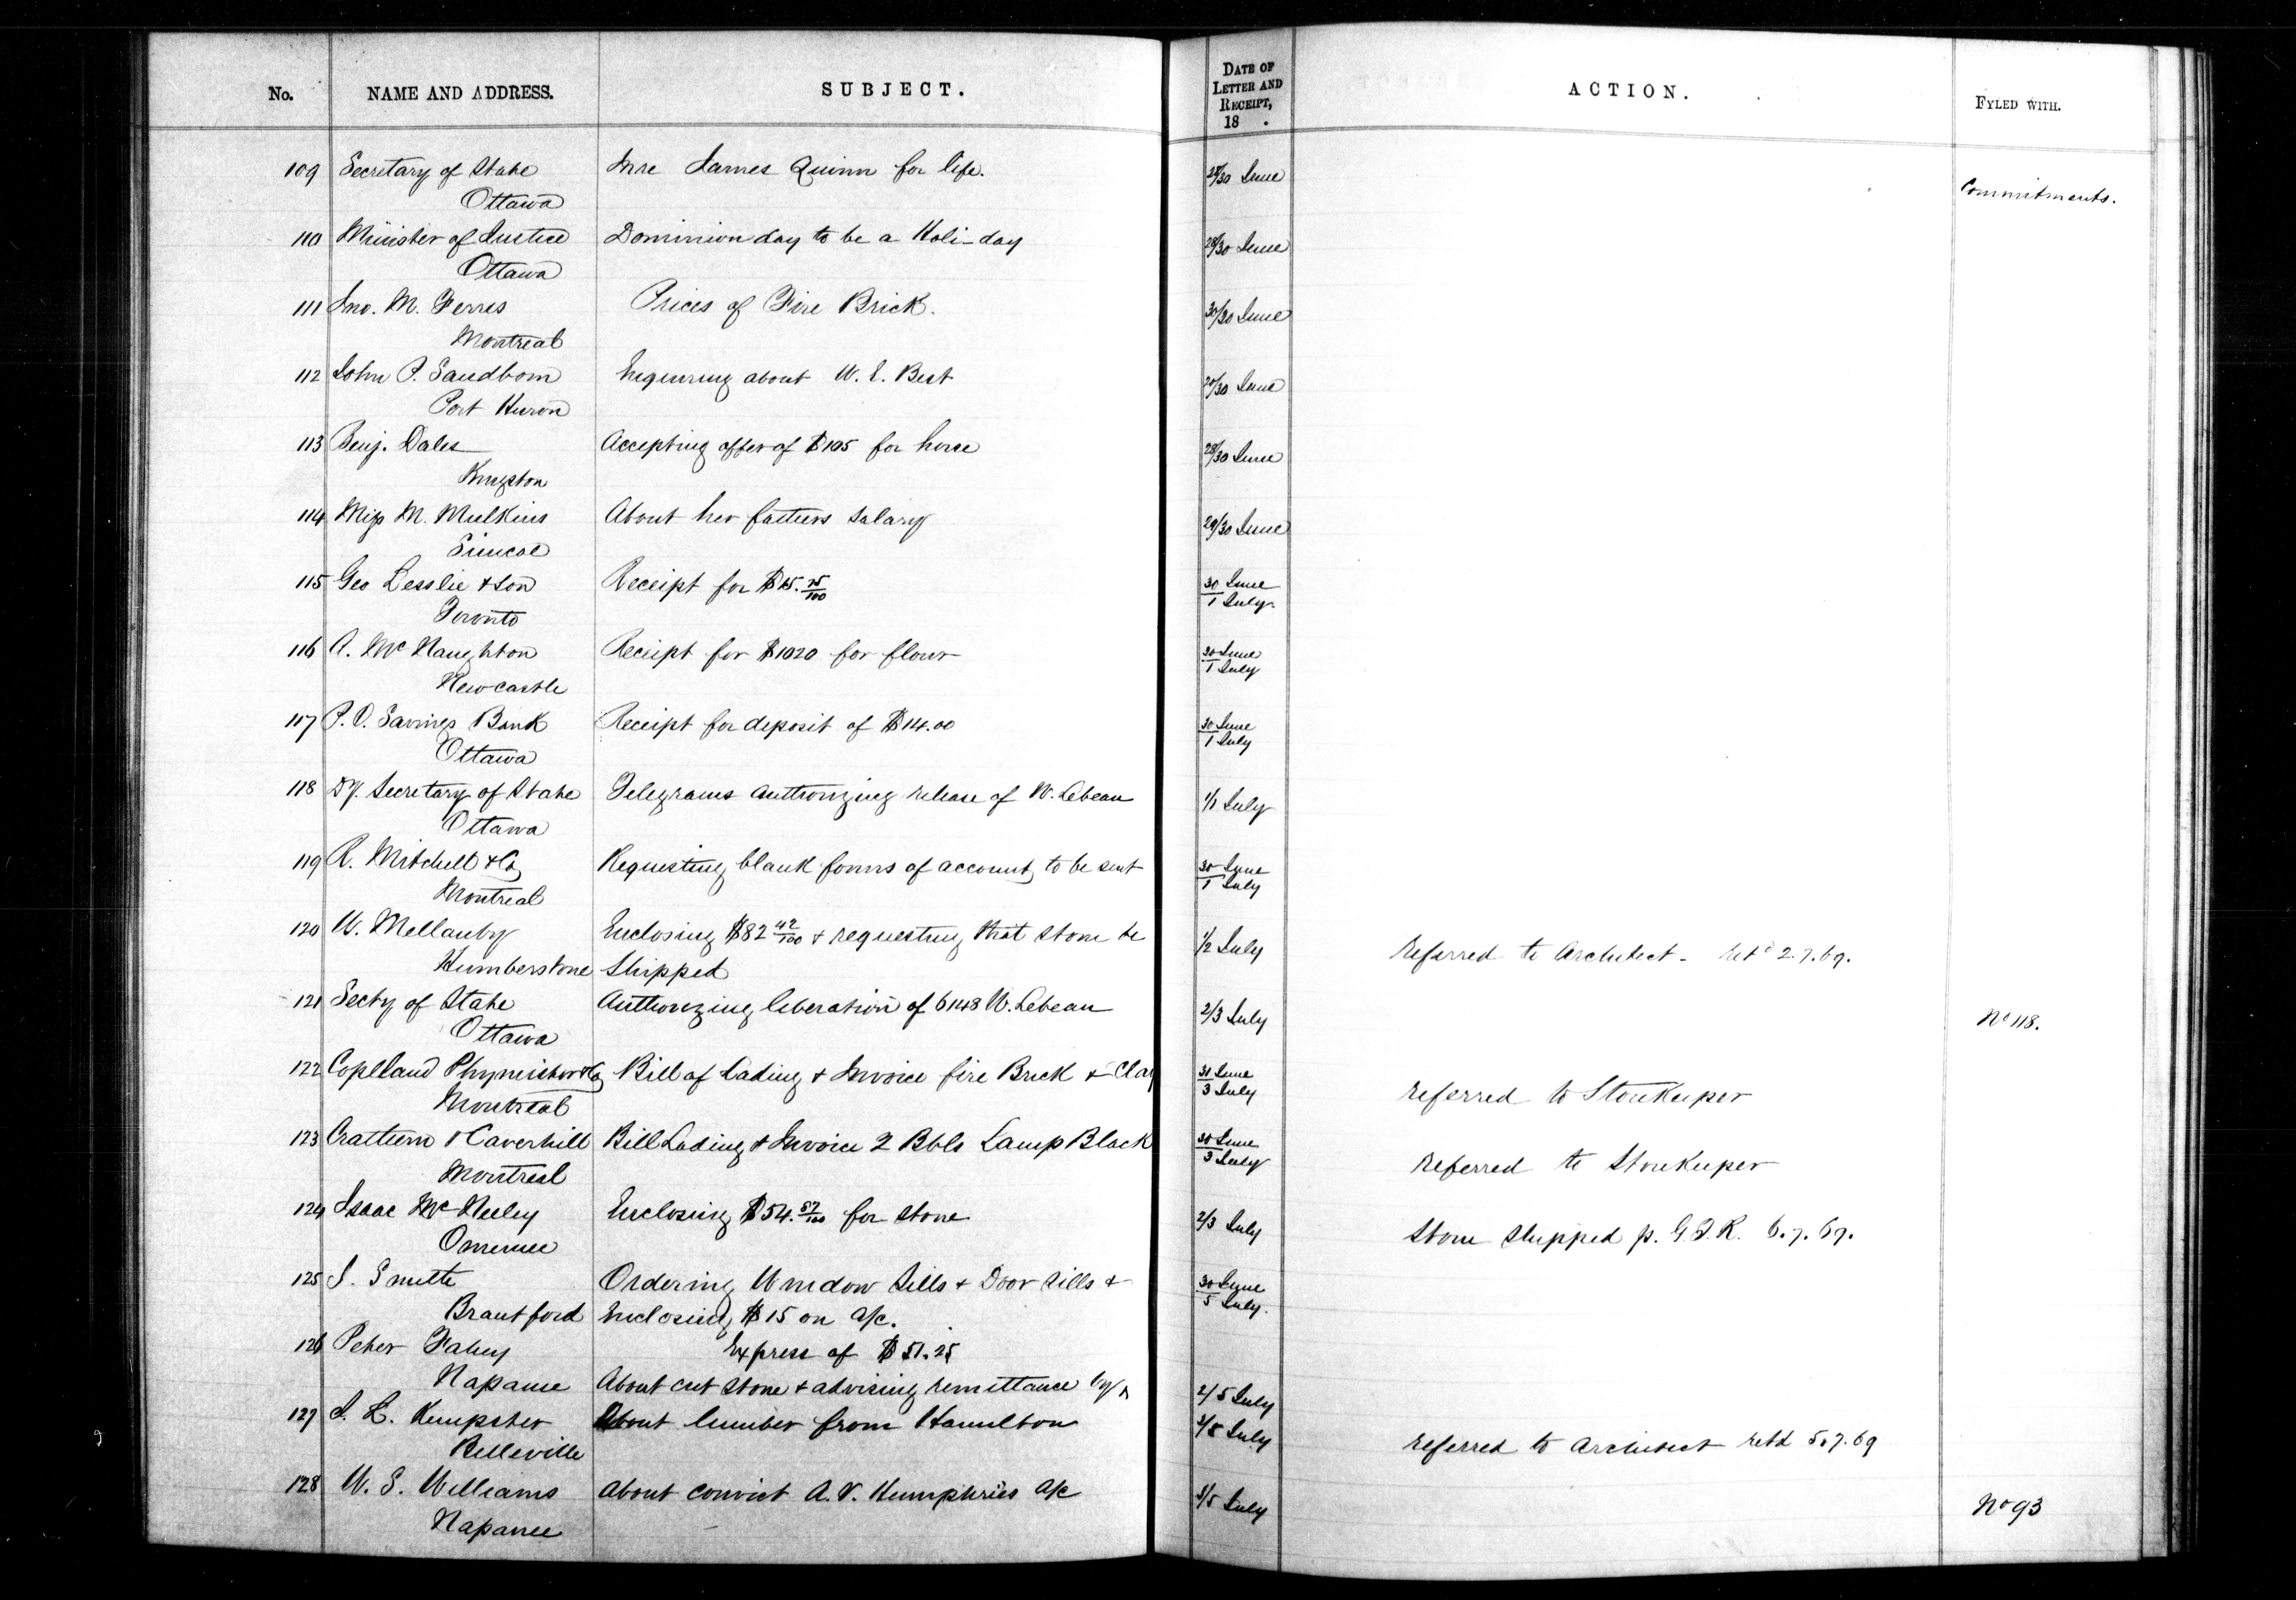 No. NAME AND ADDRESS. SUBJECT. DATE OF LETTER AND RECEIPT, 18 . ACTION. FYLED WITH.
109 Secretary of State Inre James Quinn for life. 28/30 June Commitments.
Ottawa
110 Minister of Justice Dominion day to be a Holi-day 28/30 June
Ottawa
111 Jno. M. Ferres Prices of Fire Brick. 30/30 June
Montreal
112 John P. Sandborn Enquiring about W. E. Best 20/30 June
Port Huron
113 Benj. Dales Accepting offer of $105 for horse 28/30 June
Kingston
114 Miss M. Mulkins About her fathers salary 29/30 June
Simcoe
115 Geo Lesslie & Son Receipt for $15. 75/100 30 June / 1 July
Toronto
116 A. McNaughton Receipt for $1020 for flour 30 June / 1 July
Newcastle
117 P.O. Savings Bank Receipt for deposit of $114.00 30 June / 1 July
Ottawa
118 Dy. Secretary of State Telegrams authorizing release of W. Lebeau 1/1 July
Ottawa
119 R. Mitchell & Co Requesting blank forms of account to be sent 30 June / 1 July
Montreal
120 W. Mellanby Enclosing $82 42/100 & requesting that stone be 1/2 July Referred to Architect - retd 2.7.69.
Humberstone shipped
121 Secty of State Authorizing liberation of 6148 W. Lebeau 2/3 July No 118.
Ottawa
122 Copland Phymister & Co Bill of Lading & Invoice fire Brick & Clay 31 June / 3 July referred to Storekeeper
Montreal
123 Crathern & Caverhill Bill Lading & Invoice 2 Bbls Lamp Black 30 June / 3 July referred to Storekeeper
Montreal
124 Isaac McNeeley Enclosing $54. 57/100 for stone 2/3 July Stone shipped p. G.T.R. 6.7.69.
Omemee
125 J. Smith Ordering Window Sills & Door sills & 30 June / 5 July.
Brantford enclosing $15 on a/c.
126 Peter Fahey Express of $51.25
Napanee About cut stone & advising remittance by 2/5 July
127 J. L. Kempster About lumber from Hamilton 3/5 July referred to Architect retd 5.7.69
Belleville
128 W. S. Williams About convict A. V. Humphries a/c 3/5 July No 93
Napanee